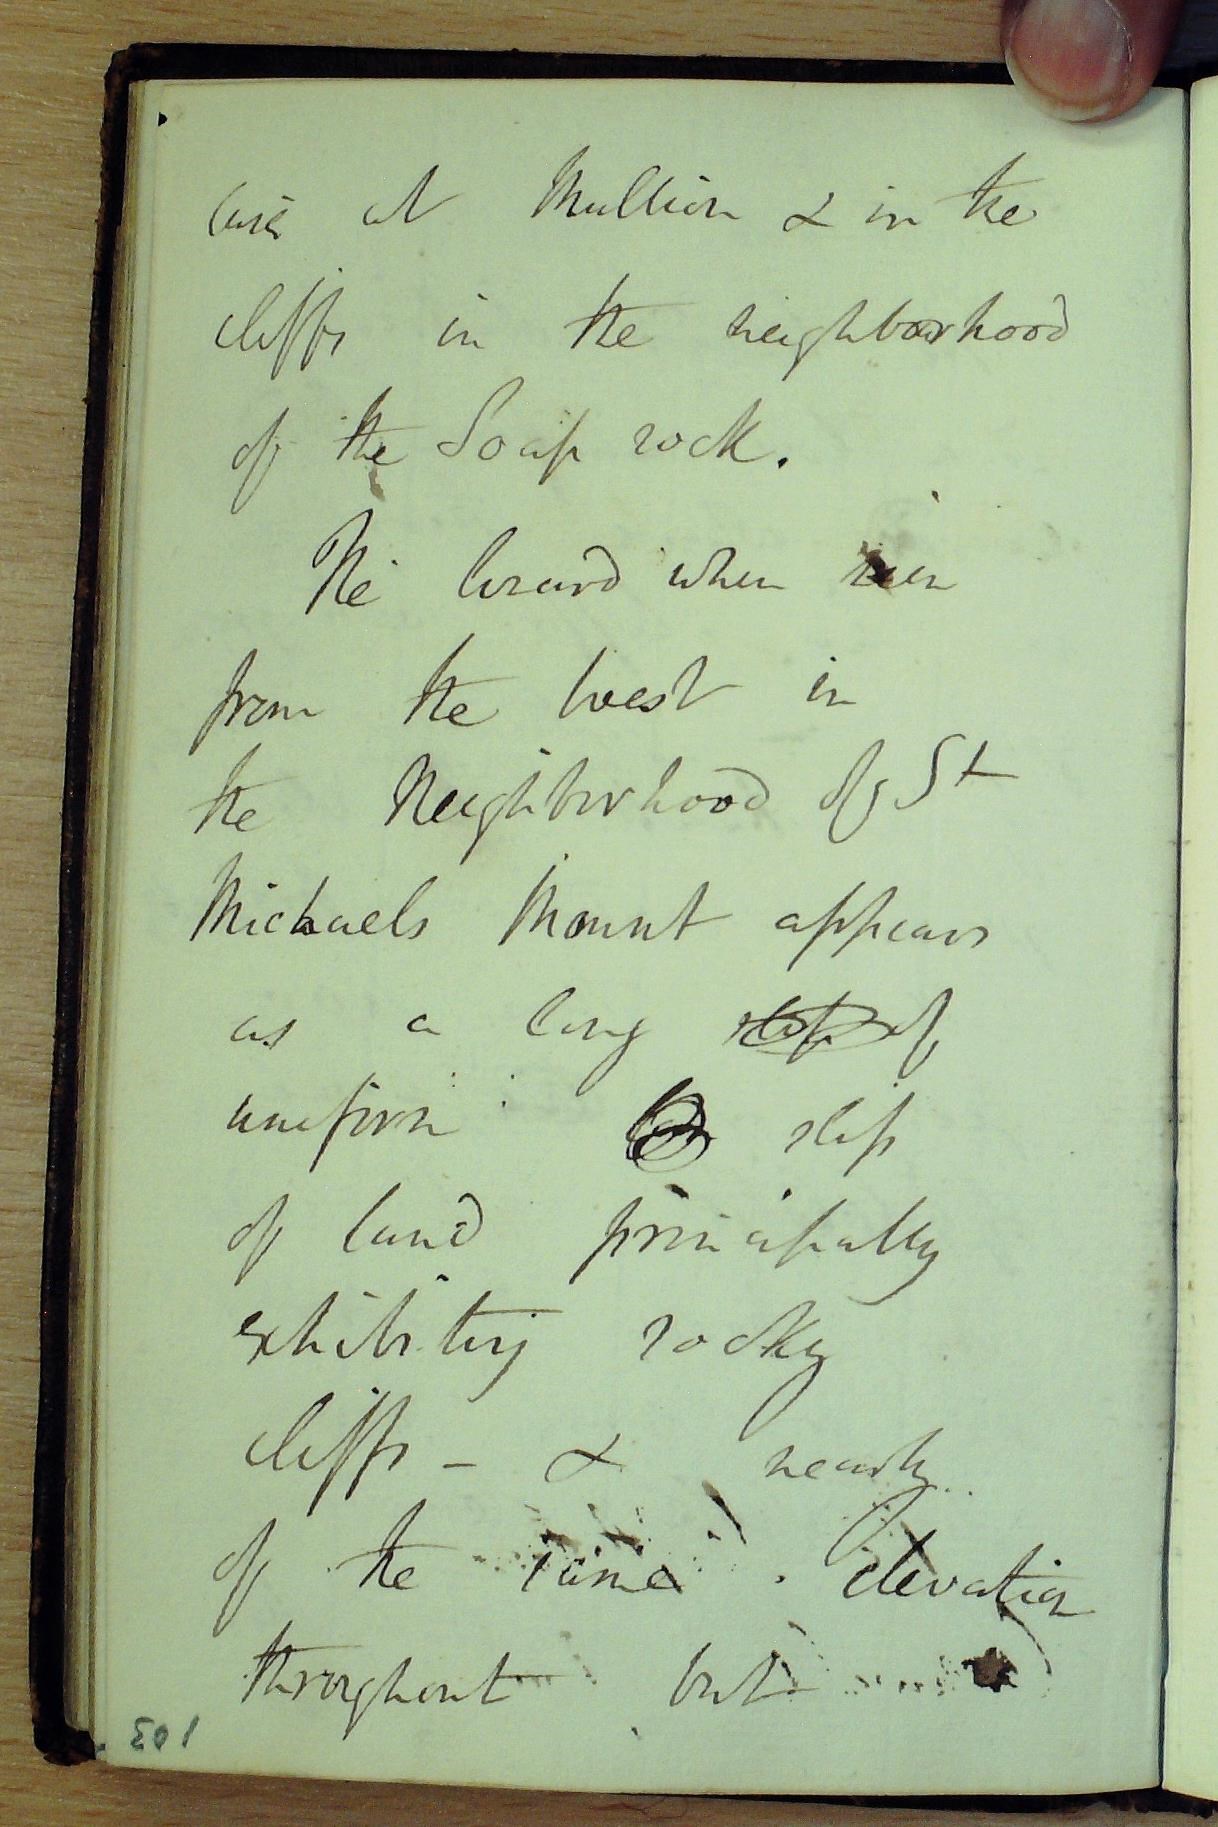 at Mullion & in the
cliffs in the neighborhood
of the Soap rock.
The lizard when seen
from the West in
the Neighborhood of St
Michaels Mount appears
as a long slip of
uniform slip
of land principally
exhibiting rocky
cliffs - & nearly
of the same elevation
throughout but
103